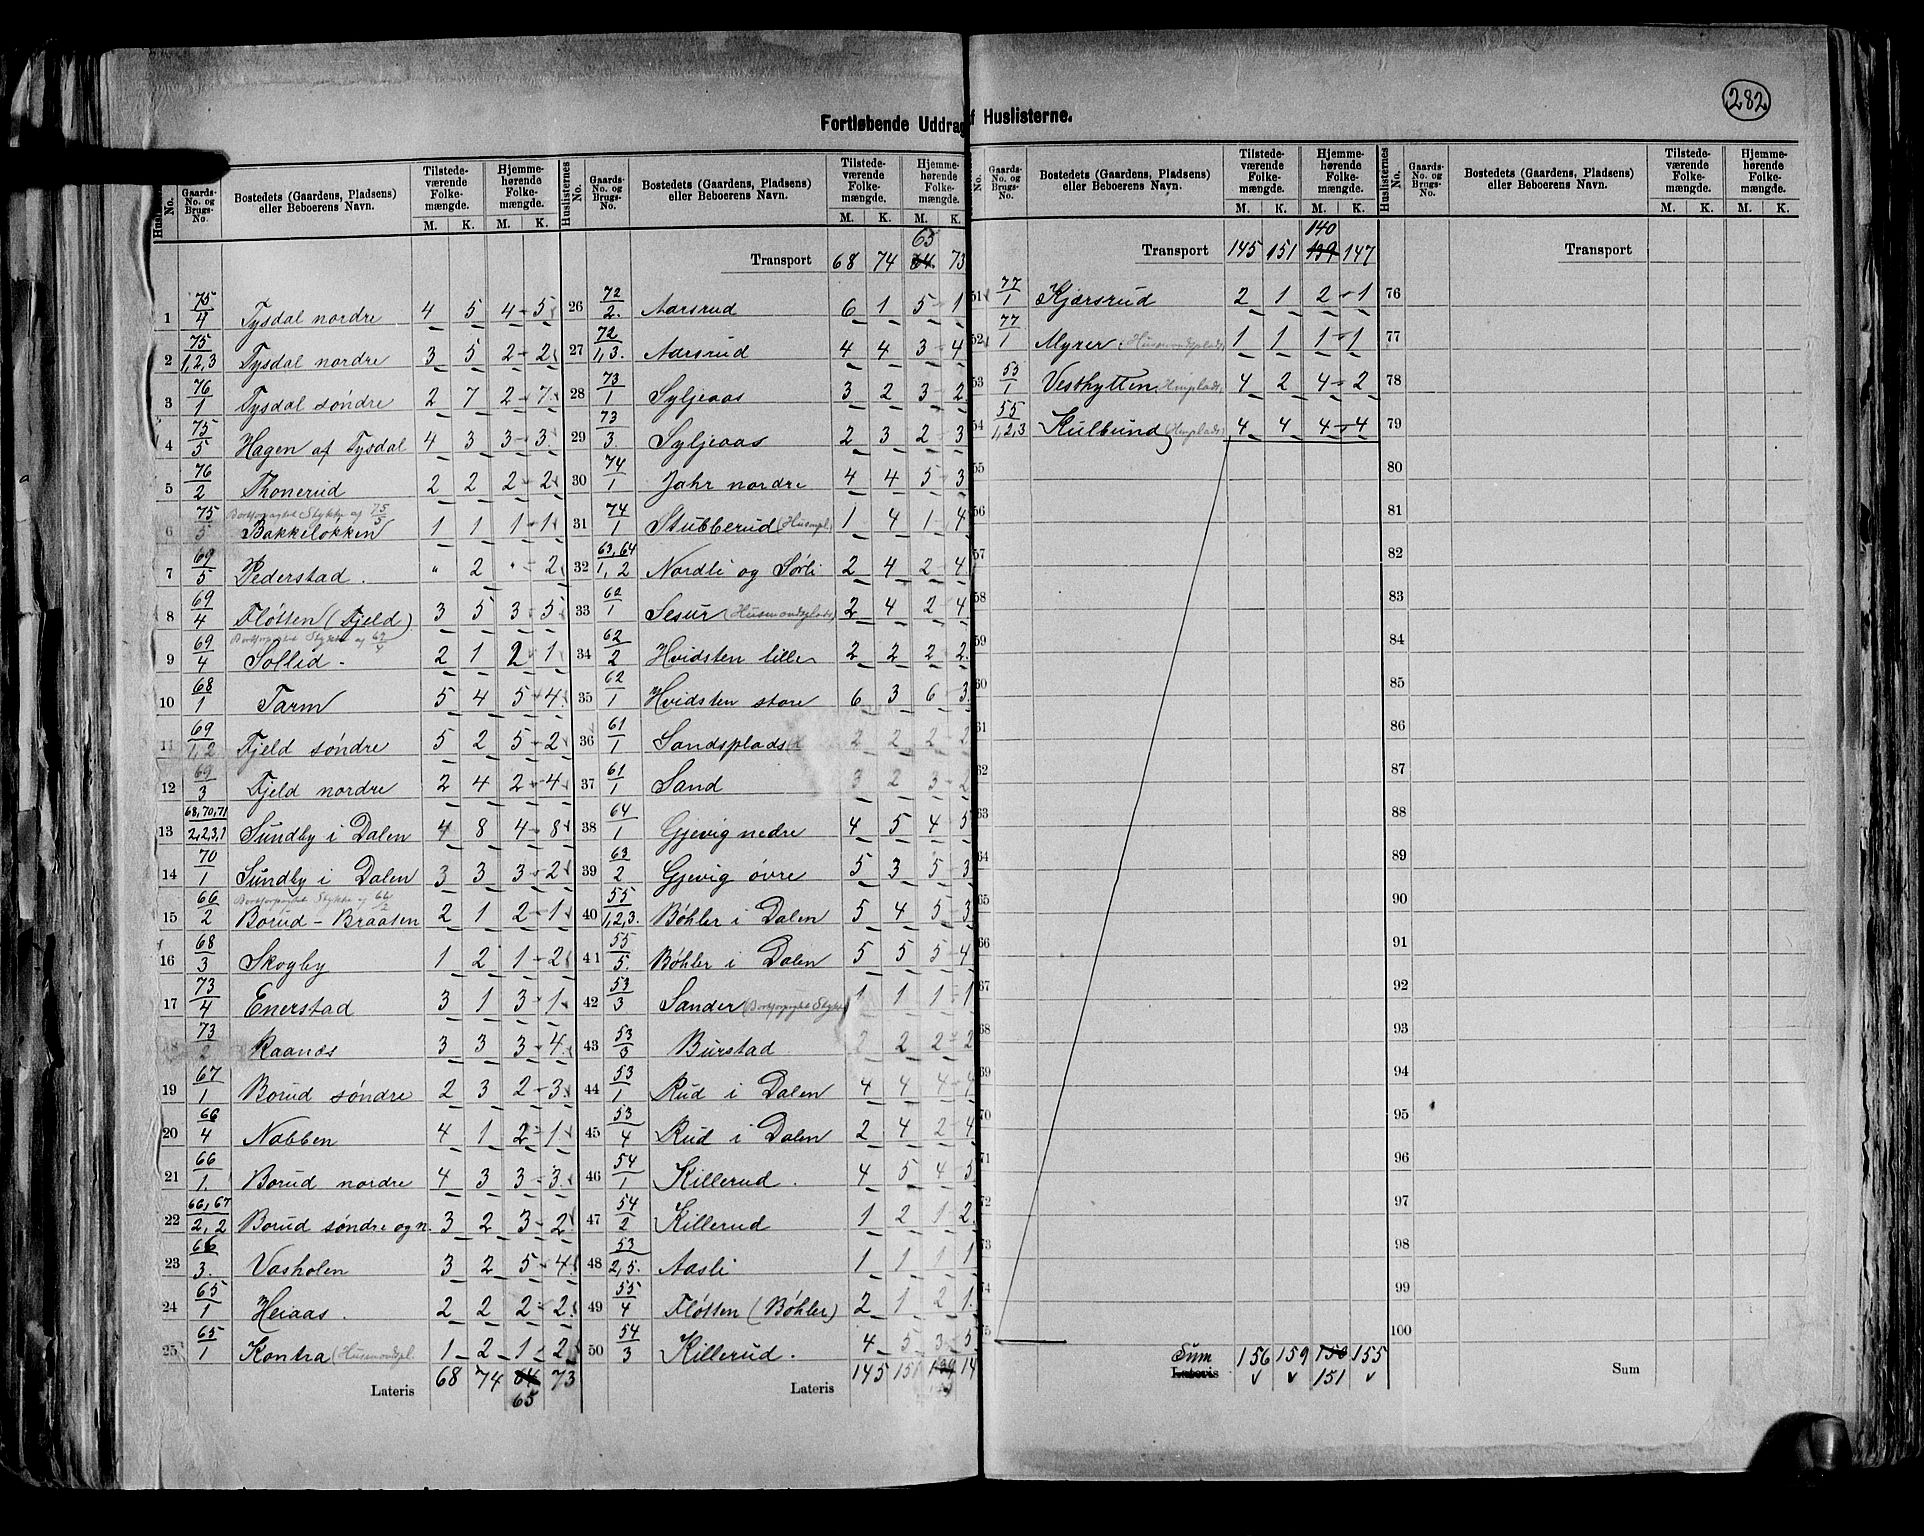 282
Fortløbende Uddrag af Huslisterne.
Huslisternes No. | Gaards-No. og Brugs-No. | Bostedets (Gaardens, Pladsens) eller Beboerens Navn. | Tilstedeværende Folkemængde. M. K. | Hjemmehørende Folkemængde. M. K.
1 75/4 Tysdal nordre 4 5 4 5
2 75/1,2,3 Tysdal nordre 3 5 2 2
3 76/1 Tysdal søndre 2 7 2 7
4 75/5 Hagen af Tysdal 4 3 3 3
5 76/2 Thonerud 2 2 2 2
6 75/5 Bortforpagtet Stykke af 75/5 Bakkeløkken 1 1 1 1
7 69/5 Pederstad. " 2 " 2
8 69/4 Fløtten (Fjeld) 3 5 3 5
9 69/4 Bortforpagtet Stykke af 69/4 Sollid. 2 1 2 1
10 68/1 Tarm 5 4 5 4
11 69/1,2 Fjeld søndre 5 2 5 2
12 69/3 Fjeld nordre 2 4 2 4
13 68,70,71/2,2,3,1 Sundby i Dalen 4 8 4 8
14 70/1 Sundby i Dalen 3 3 3 2
15 66/2 Bortforpagtet Stykke af 66/2 Borud - Braaten 2 1 2 1
16 68/3 Skogby 1 2 1 2
17 73/4 Enerstad 3 1 3 1
18 73/2 Raanæs 3 3 3 4
19 67/1 Borud søndre 2 3 2 3
20 66/4 Nabben 4 1 2 1
21 66/1 Borud nordre 4 3 3 3
22 66,67/2,2 Borud søndre og n. 3 2 3 2
23 66/3. Vasholen 3 2 5 4
24 65/1 Heiaas. 2 2 2 2
25 65/1 Kontra (Husmandspl. 1 2 1 2
Lateris 68 74 64 65 73
Transport 68 74 64 65 73
26 72/2. Aarsrud 6 1 5 1
27 72/1,3. Aarsrud 4 4 3 4
28 73/1 Syljeaas 3 2 3 2
29 73/3. Syljeaas 2 3 2 3
30 74/1 Jahr nordre 4 4 5 3
31 74/1 Stubberud (Husmpl.) 1 4 1 4
32 63,64/1,2 Nordli og Sørli 2 4 2 4
33 62/1 Sesur (Husmandsplads) 2 4 2 4
34 62/2 Hvidsten lille 2 2 2 2
35 62/1 Hvidsten store 6 3 6 3
36 61/1 Sandsplads 2 2 2 2
37 61/1 Sand 3 2 3 2
38 64/1 Gjevig nedre 4 5 4 5
39 63/2 Gjevig øvre 5 3 5 3
40 55/1,2,3. Bøhler i Dalen 5 4 5 3
41 55/5. Bøhler i Dalen 5 5 5 4
42 53/3 Sander (Bortforpagtet Stykke) 1 1 1 1
43 53/3 Burstad 2 2 2 2
44 53/1 Rud i Dalen 4 4 4 4
45 53/4 Rud i Dalen 2 4 2 4
46 54/1 Killerud. 4 5 4 5
47 54/2 Killerud 1 2 1 2
48 53/2,5. Aasli 1 1 1 1
49 55/4 Fløtten (Bøhler) 2 1 2 1
50 54/3 Killerud. 4 5 3 5
Lateris 145 151 139 14
Transport 145 151 139 140 147
51 77/1 Kjærsrud 2 1 2 1
52 77/1 Myrer (Husmandsplads) 1 1 1 1
53 53/1 Vesthytten (Hmplads) 4 2 4 2
54 55/1,2,3 Kulbund (Hmplads) 4 4 4 4
55
56
57
58
59
60
61
62
63
64
65
66
67
68
69
70
71
72
73
74
75
Sum Lateris 156 159 150 151 155
Transport
76
77
78
79
80
81
82
83
84
85
86
87
88
89
90
91
92
93
94
95
96
97
98
99
100
Sum